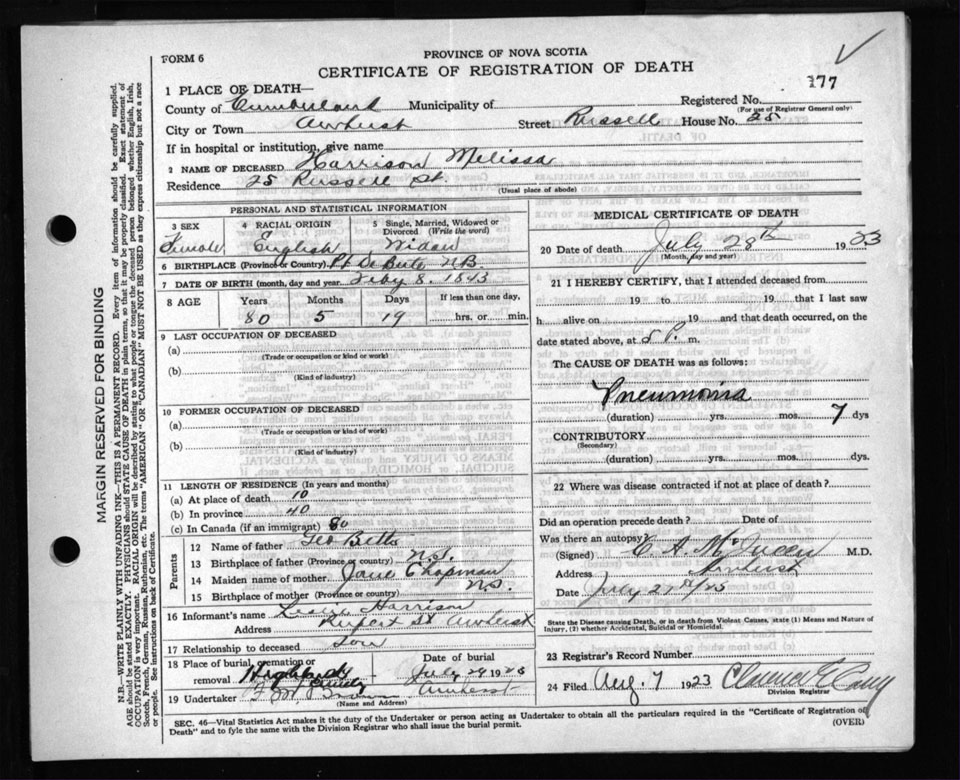 FORM 6
PROVINCE OF NOVA SCOTIA
CERTIFICATE OF REGISTRATION OF DEATH
177
1 PLACE OF DEATH—
County of Cumberland Municipality of Registered No.
(For use of Registrar General only)
City or Town Amherst Street Russell House No. 25
If in hospital or institution, give name
2 NAME OF DECEASED Harrison Melissa
Residence 25 Russell St.
(Usual place of abode)
PERSONAL AND STATISTICAL INFORMATION
3 SEX 4 RACIAL ORIGIN 5 Single, Married, Widowed or Divorced (Write the word)
Female English Widow
6 BIRTHPLACE (Province or Country) Pt De Bute N.B
7 DATE OF BIRTH (month, day and year) Feby 8. 1843
8 AGE Years Months Days If less than one day,
80 5 19 hrs. or min.
9 LAST OCCUPATION OF DECEASED
(a)
(Trade or occupation or kind or work)
(b)
(Kind of industry)
10 FORMER OCCUPATION OF DECEASED
(a)
(Trade or occupation or kind of work)
(b)
(Kind of industry)
11 LENGTH OF RESIDENCE (In years and months)
(a) At place of death 10
(b) In province 40
(c) In Canada (if an immigrant) 80
Parents
12 Name of father Geo Betts
13 Birthplace of father (Province or country) N.S.
14 Maiden name of mother Jane Chapman
15 Birthplace of mother (Province or country) N.S.
16 Informant's name Leslie Harrison
Address Rupert St Amherst
17 Relationship to deceased Son
18 Place of burial, cremation or removal Date of burial
July 29 1923
19 Undertaker Brown Amherst
(Name and Address)
MEDICAL CERTIFICATE OF DEATH
20 Date of death July 28th 1923
(Month, day and year)
21 I HEREBY CERTIFY, that I attended deceased from
19 to 19 that I last saw
h alive on 19 and that death occurred, on the
date stated above, at 5 P. m.
The CAUSE OF DEATH was as follows:
Pneumonia
(duration) yrs. mos. 7 dys
CONTRIBUTORY
(Secondary)
(duration) yrs. mos. dys.
22 Where was disease contracted if not at place of death?
Did an operation precede death? Date of
Was there an autopsy
(Signed) C A McQueen M.D.
Address Amherst
Date July
State the Disease causing Death, or in death from Violent Causes, state (1) Means and Nature of Injury, (2) whether Accidental, Suicidal or Homicidal.
23 Registrar's Record Number
24 Filed Aug. 7 1923
Division Registrar
SEC. 46—Vital Statistics Act makes it the duty of the Undertaker or person acting as Undertaker to obtain all the particulars required in the "Certificate of Registration of
Death" and to fyle the same with the Division Registrar who shall issue the burial permit.
(OVER)
MARGIN RESERVED FOR BINDING
N.B.—WRITE PLAINLY WITH UNFADING INK—THIS IS A PERMANENT RECORD. Every item of information should be carefully supplied.
AGE should be stated EXACTLY. PHYSICIANS should STATE CAUSE OF DEATH in plain terms, so that it may be properly classified. Exact statement of
OCCUPATION is very important. RACIAL ORIGIN will be described by stating to what people or tongue the deceased person belonged whether English, Irish,
Scotch, French, German, Russian, Ruthenian, etc. The terms "AMERICAN" OR "CANADIAN" MUST NOT BE USED as they express citizenship but not a race
or people. See instructions on back of Certificate.